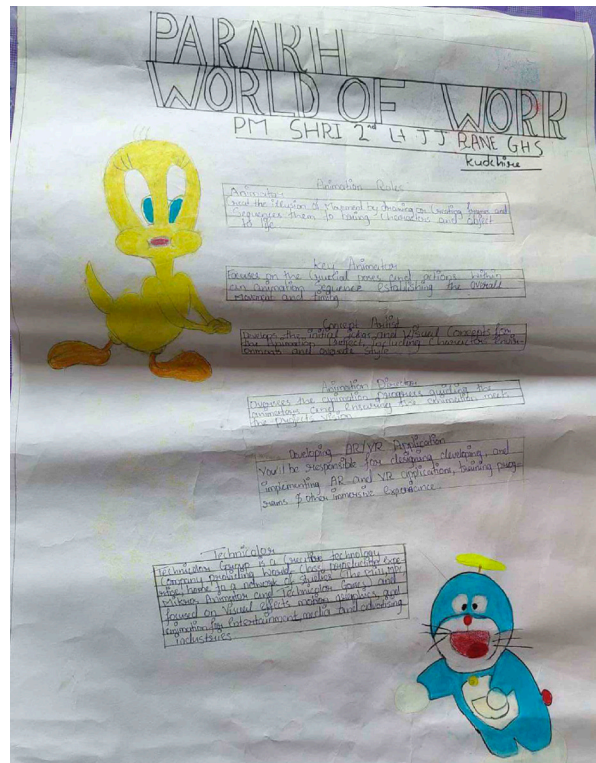 PARAKH
WORLD OF WORK
PM SHRI 2nd Lt J J RANE GHS
kudchire
Animation Roles
Animator:
Creat the illusion of movement by drawing or Creating frames and
Sequences them to bring Characters and object
to life
Key Animator
Focuses on the Crucial Poses and actions within
an animation sequence establishing the overall
movement and timing
Concept Artist
Develops the initial ideas and Visual Concepts for
the animation project, including Characters
and style
Animation Director
Oversees the animation progress guiding the
animators and ensuring the animation meets
the project's vision
Developing AR/VR Application
You'll be responsible for designing developing, and
implementing AR and VR application, training prog-
rams & other immersive Experience
Technicolor
Technicolor Group is a Creative technology
Company providing World Class production
home to a network of studios The Mill, MPC
Mikros Animation and Technicolor Games and
focused on Visual effects motion graphics and
animation for Entertainment, media and advertising
industries